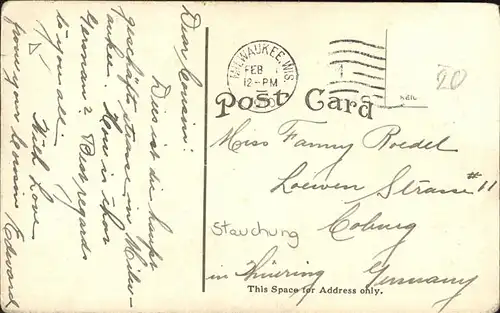 Dear Cousin:
Dies ist die haupt
geschäfts strasse in Milw-
aukee. How is ihor
German? Best regards
to you all.
With Love
from your Cousin Edward
MILWAUKEE, WIS.
FEB
12-PM
1
20
Post Card
Miss Fanny Roedel
Loewen Strasse #11
Stauchung
Coburg
in Thüring Germany
This Space for Address only.